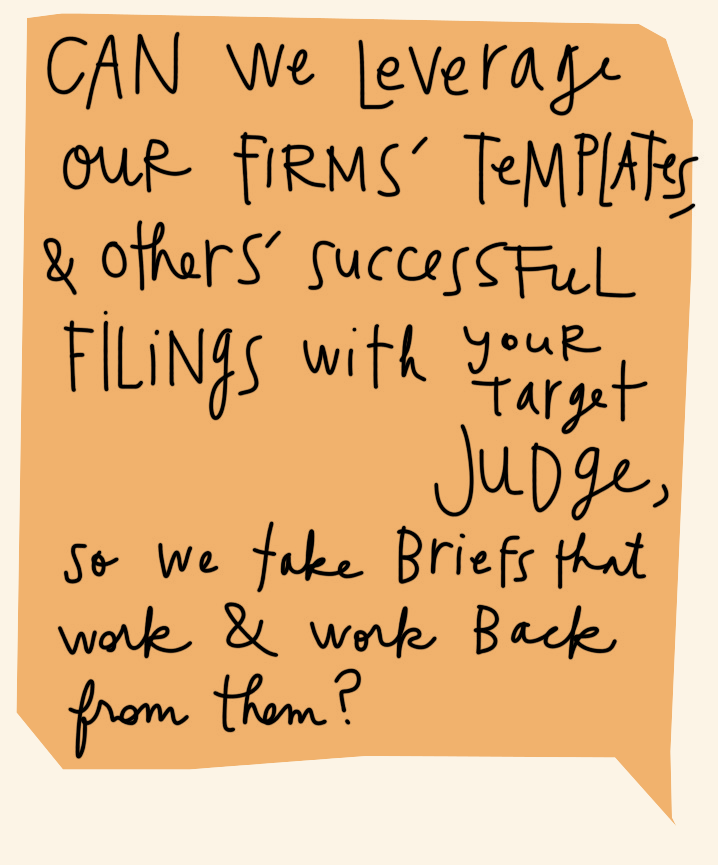 CAN We Leverage
OUR FIRMS' TeMPLATes,
& others' successFuL
FiLiNgs with your
target
JUDge,
so we take Briefs that
work & work Back
from them?